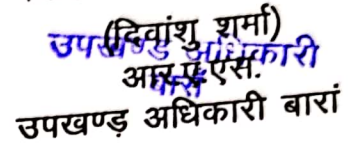 (दिवांशु शर्मा)
उपखण्ड अधिकारी
आर.ए.एस.
उपखण्ड़ अधिकारी बारां